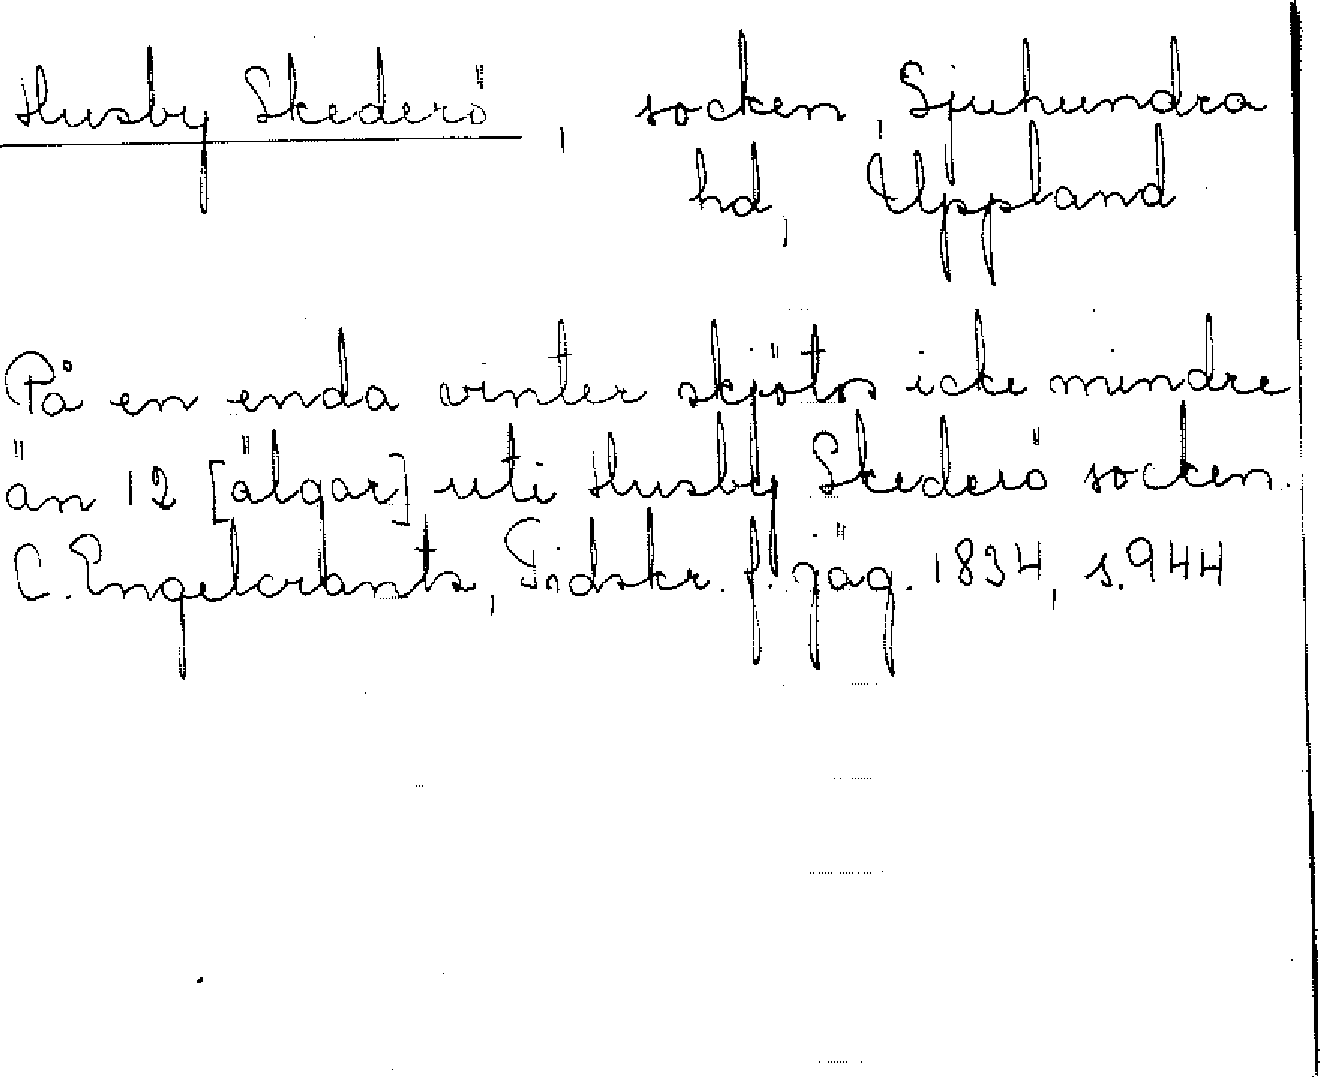 Husby Skederö, socken, Sjuhundra
hd, Uppland
På en enda vinter skjötos icke mindre
än 12 [älgar] uti Husby Skederö socken.
C. Engelcrants, Tidskr. f. jäg. 1834, s. 944